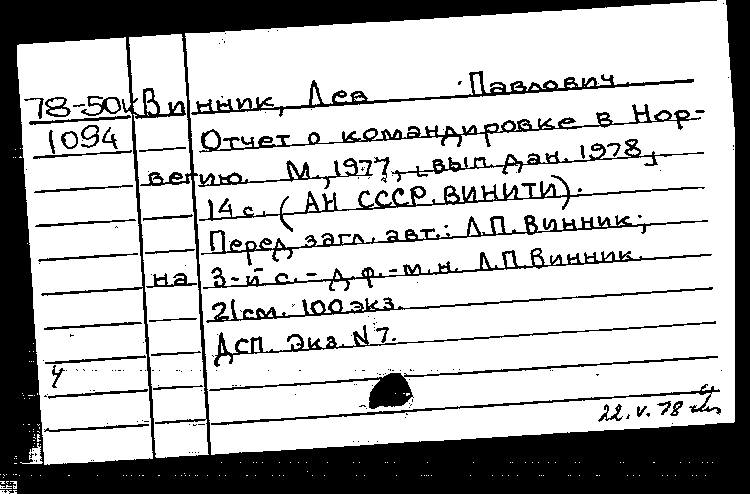 78-50к Винник, Лев Павлович
1094 Отчет о командировке в Нор-
вегию. М., 1977, [вып. дан. 1978]
14 с. (АН СССР. ВИНИТИ).
Перед загл. авт.: Л.П. Винник;
на 3-й с. – д.ф.-м.н. Л.П. Винник.
21 см. 100 экз.
ДСП. Экз. N 7.
ч
22.V.78